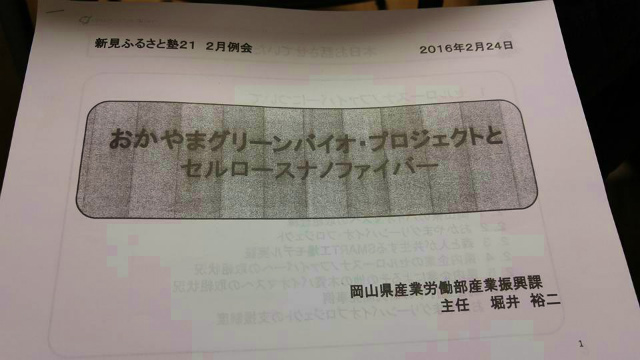 新見ふるさと塾21 2月例会
2016年2月24日
おかやまグリーンバイオ・プロジェクトと
セルロースナノファイバー
岡山県産業労働部産業振興課
主任 堀井 裕二
1